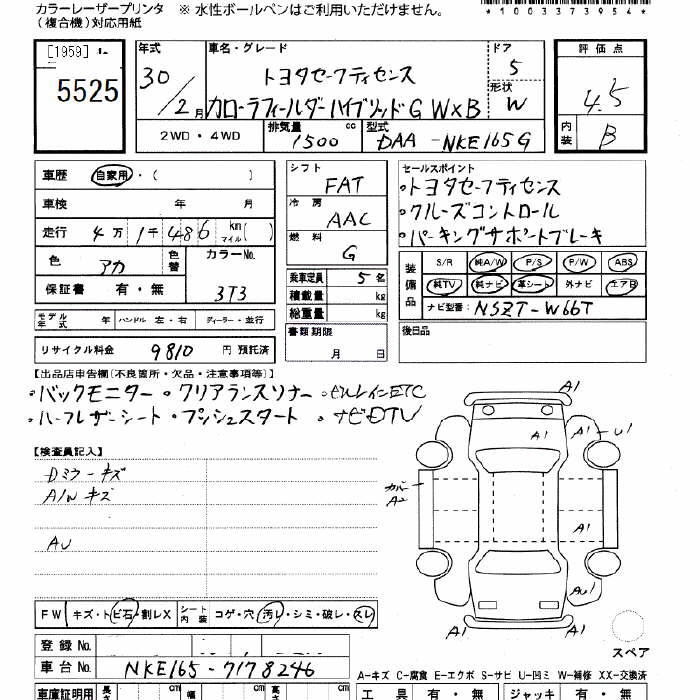 カラーレーザープリンタ ※ 水性ボールペンはご利用いただけません。
(複合機)対応用紙
*1003373954*
[1959]
5525
年式 30 / 2月
車名・グレード トヨタセーフティセンス
カローラフィールダーハイブリッドG WxB
ドア 5
形状 W
評価点 4.5
内装 B
2WD・4WD
排気量 1500 cc
型式 DAA -NKE165G
車歴 自家用・( )
車検 年 月
走行 4万 1千 486 km マイル( )
色 アカ 色替 カラーNo. 3T3
保証書 有・無
シフト FAT
冷房 AAC
燃料 G
乗車定員 5名
積載量 kg
総重量 kg
書類期限 月 日
セールスポイント
・トヨタセーフティセンス
・クルーズコントロール
・パーキングサポートブレーキ
装備品 S/R 純A/W P/S P/W ABS
純TV 純ナビ 革シート 外ナビ エアB
ナビ型番: NSZT-W66T
後日品
モデル年式 年 ハンドル 左・右 ディーラー・並行
リサイクル料金 9810 円 預託済
【出品店申告欄(不良箇所・欠品・注意事項等)】
・バックモニター ・クリアランスソナー ・ビルトインETC
・ハーフレザーシート ・プッシュスタート ・ナビDTV
【検査員記入】
Dミラーキズ
A/Wキズ
AU
A1
A1
A1
U1
カバー
A2
A1
A1
AU1
A1
A1
スペア
FW キズ・トビ石・割レX シート内装 コゲ・穴・汚レ・シミ・破レ・スレ
登録No.
車台No. NKE165-7178246
A-キズ C-腐食 E-エクボ S-サビ U-凹ミ W-補修 XX-交換済
車庫証明用 長さ cm 幅 cm 高さ cm
工具 有・無 ジャッキ 有・無